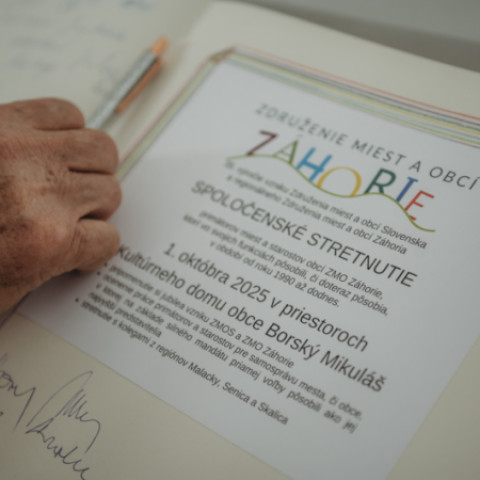 ZDRUŽENIE MIEST A OBCÍ
ZÁHORIE
výročie vzniku Združenia miest a obcí Slovenska
a regionálneho Združenia miest a obcí Záhoria
SPOLOČENSKÉ STRETNUTIE
primátorov miest a starostov obcí ZMO Záhorie,
ktorí vo svojich funkciách pôsobili, či doteraz pôsobia,
v období od roku 1990 až dodnes.
1. októbra 2025 v priestoroch
Kultúrneho domu obce Borský Mikuláš
pripomenutie si jubilea vzniku ZMOS a ZMO Záhorie
ocenenie práce primátorov a starostov pre samosprávu mesta, či obce,
v ktorej, na základe silného mandátu priamej voľby pôsobili ako jej
najvyšší predstavitelia
stretnutie s kolegami z regiónov Malacky, Senica a Skalica